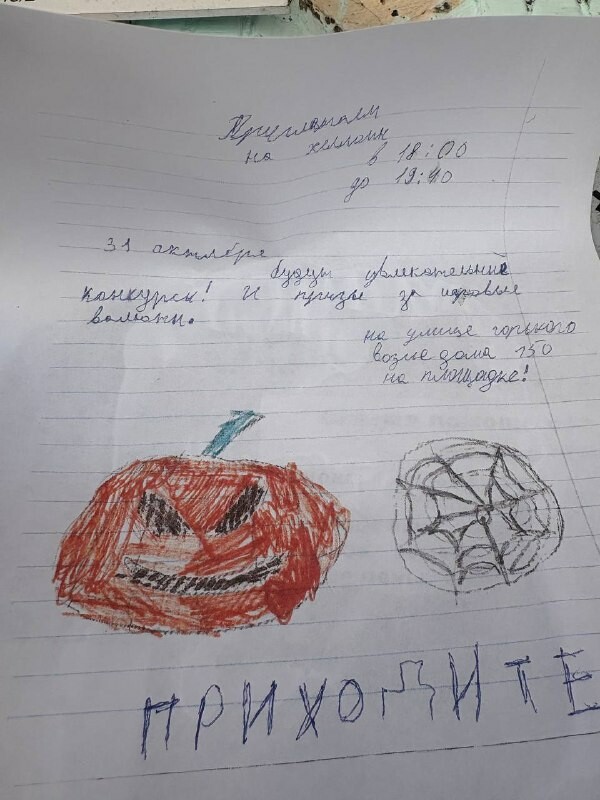 Приглашаем
на хелоин
в 18:00
до 19:40
31 октября
будут увлекательние
конкурсы! И призы за игровые
валюты.
на улице горького
возле дома 150
на площадке!
ПРИХОДИТЕ